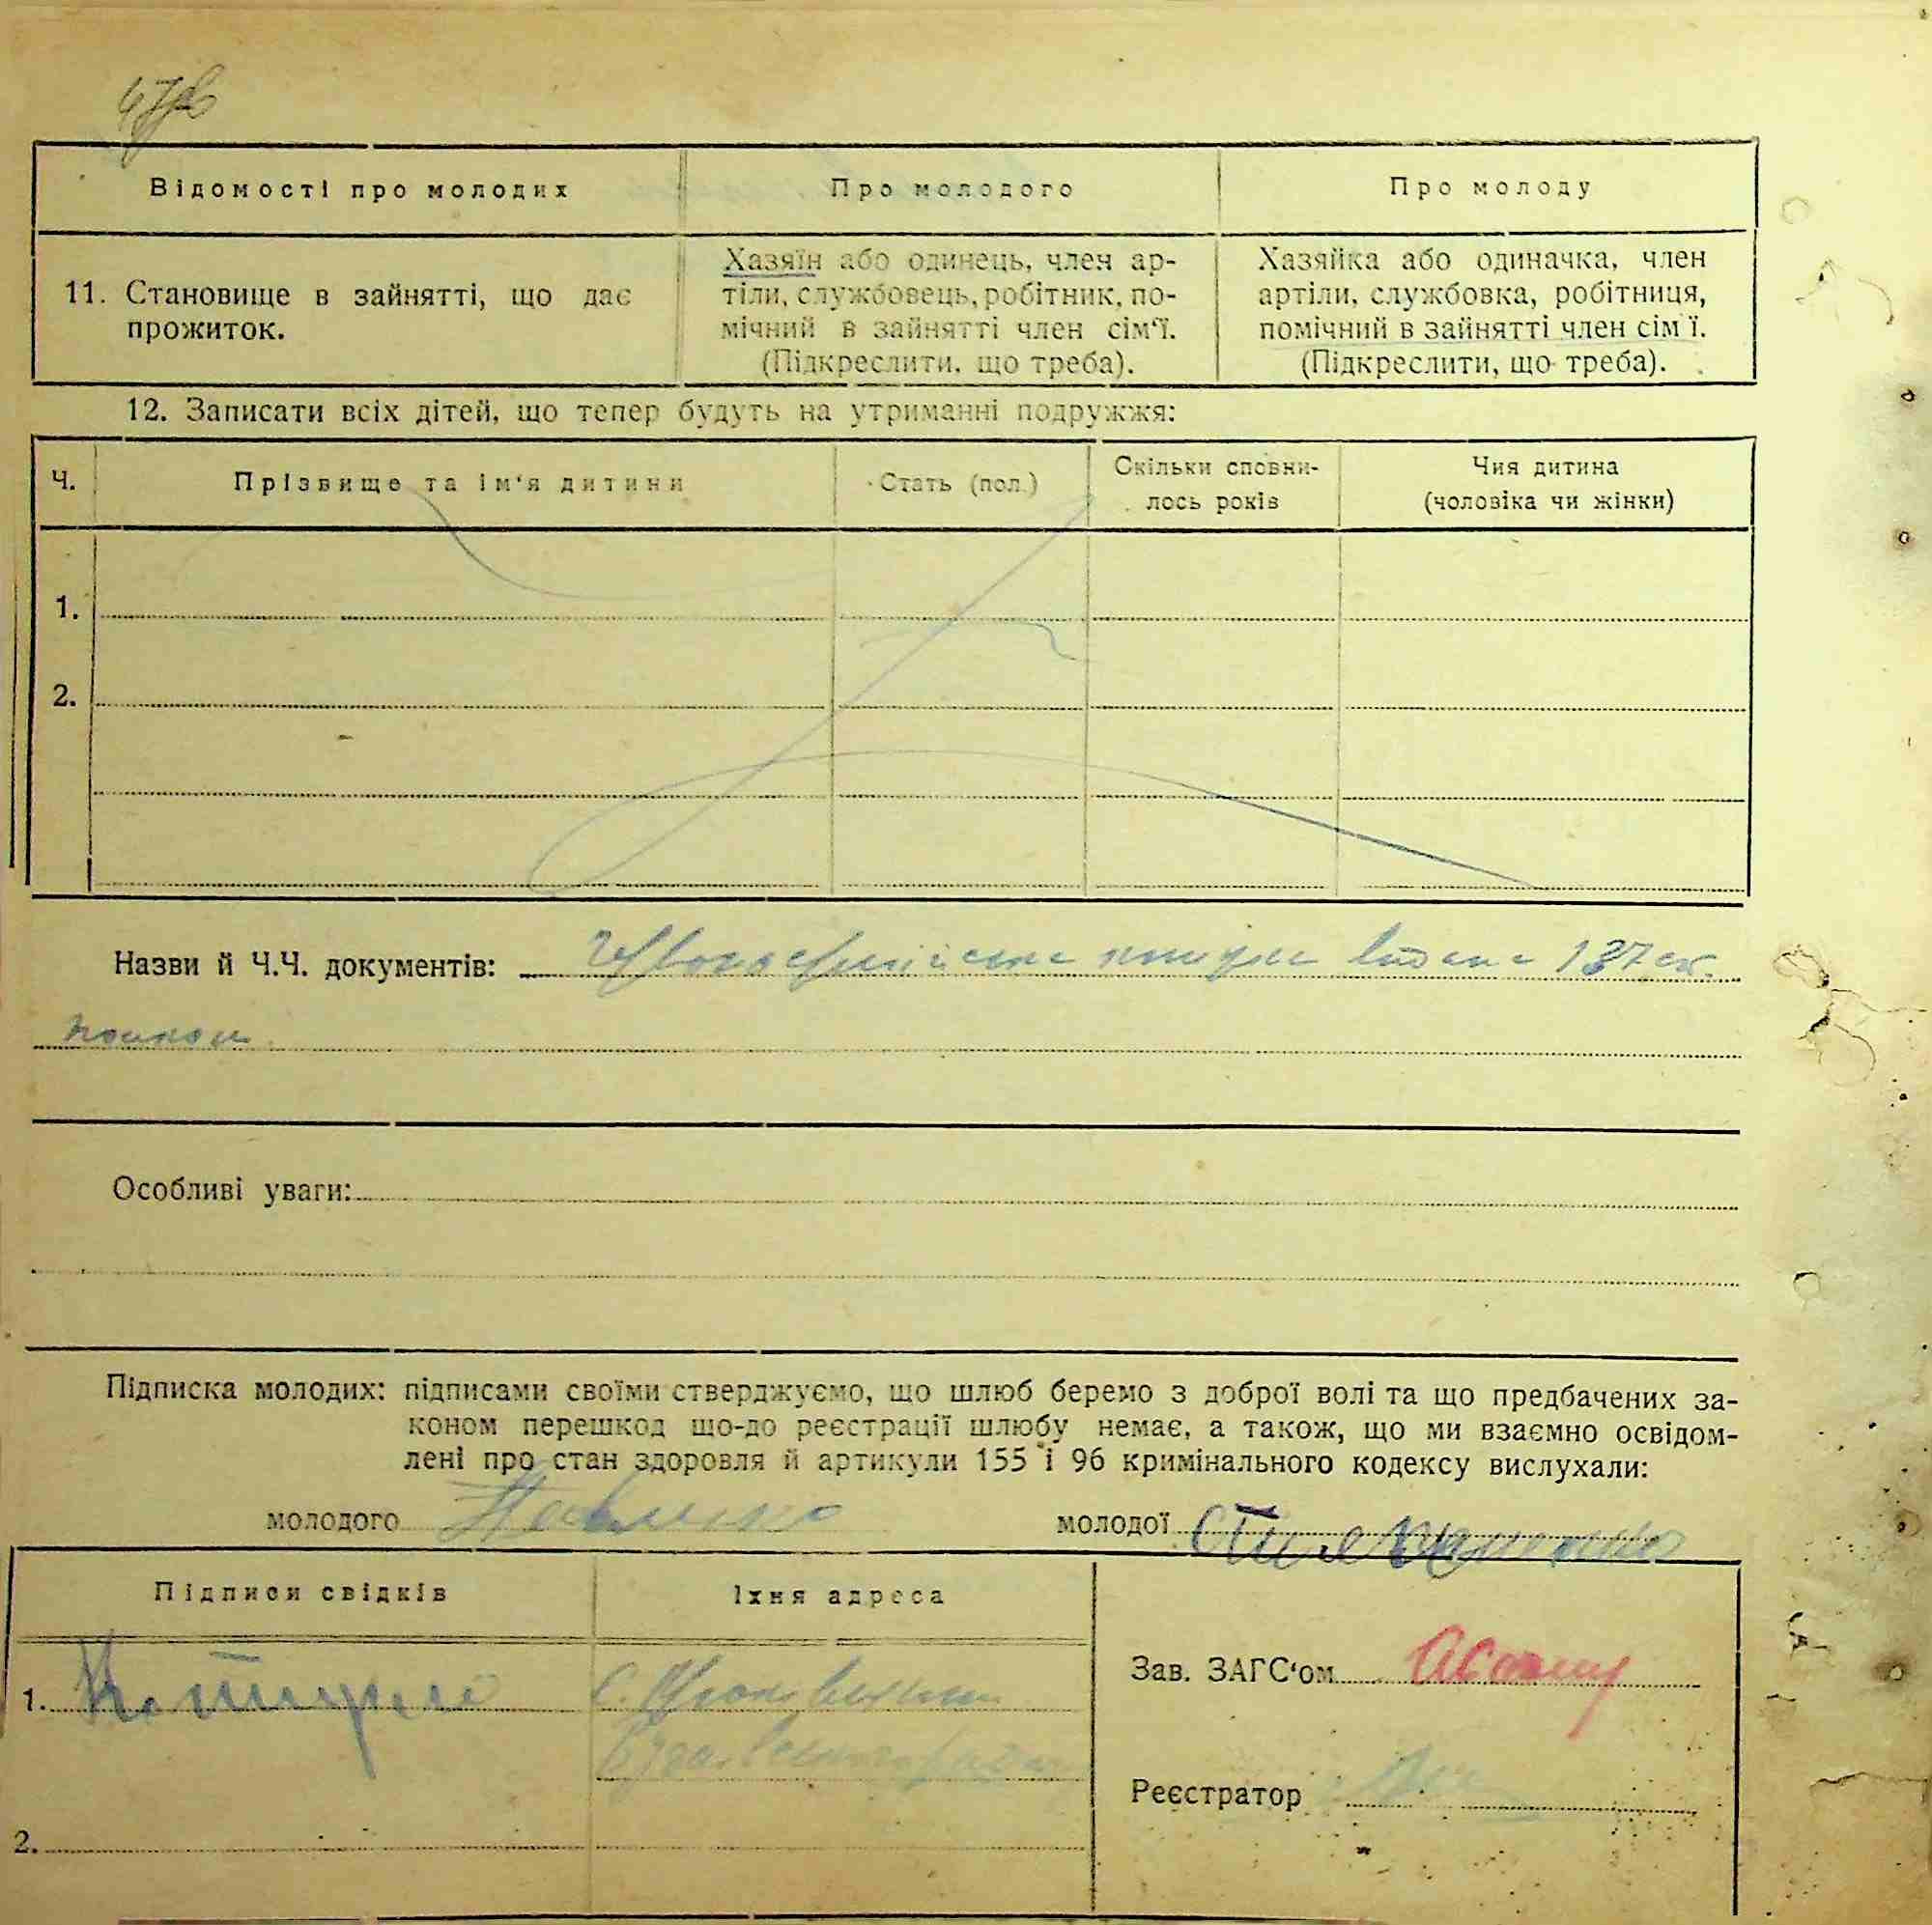 Відомості про молодих
Про молодого
Про молоду
11. Становище в зайнятті, що дає
прожиток.
Хазяїн або одинець, член ар-
тіли, службовець, робітник, по-
мічний в зайнятті член сім‘ї.
(Підкреслити, що треба).
Хазяйка або одиначка, член
артіли, службовка, робітниця,
помічний в зайнятті член сім ї.
(Підкреслити, що треба).
12. Записати всіх дітей, що тепер будуть на утриманні подружжя:
Ч.
Прізвище та ім‘я дитини
Стать (пол.)
Скільки сповни-
лось років
Чия дитина
(чоловіка чи жінки)
1.
2.
Назви й Ч.Ч. документів: Червоноармійська книжка видана 137
полком
Особливі уваги:
Підписка молодих: підписами своїми стверджуємо, що шлюб беремо з доброї волі та що предбачених за-
коном перешкод що-до реєстрації шлюбу немає, а також, що ми взаємно освідом-
лені про стан здоровля й артикули 155 і 96 кримінального кодексу вислухали:
молодого Павленко
молодої
Підписи свідків
Їхня адреса
1.
с.
2.
Зав. ЗАГС‘ом
Реєстратор